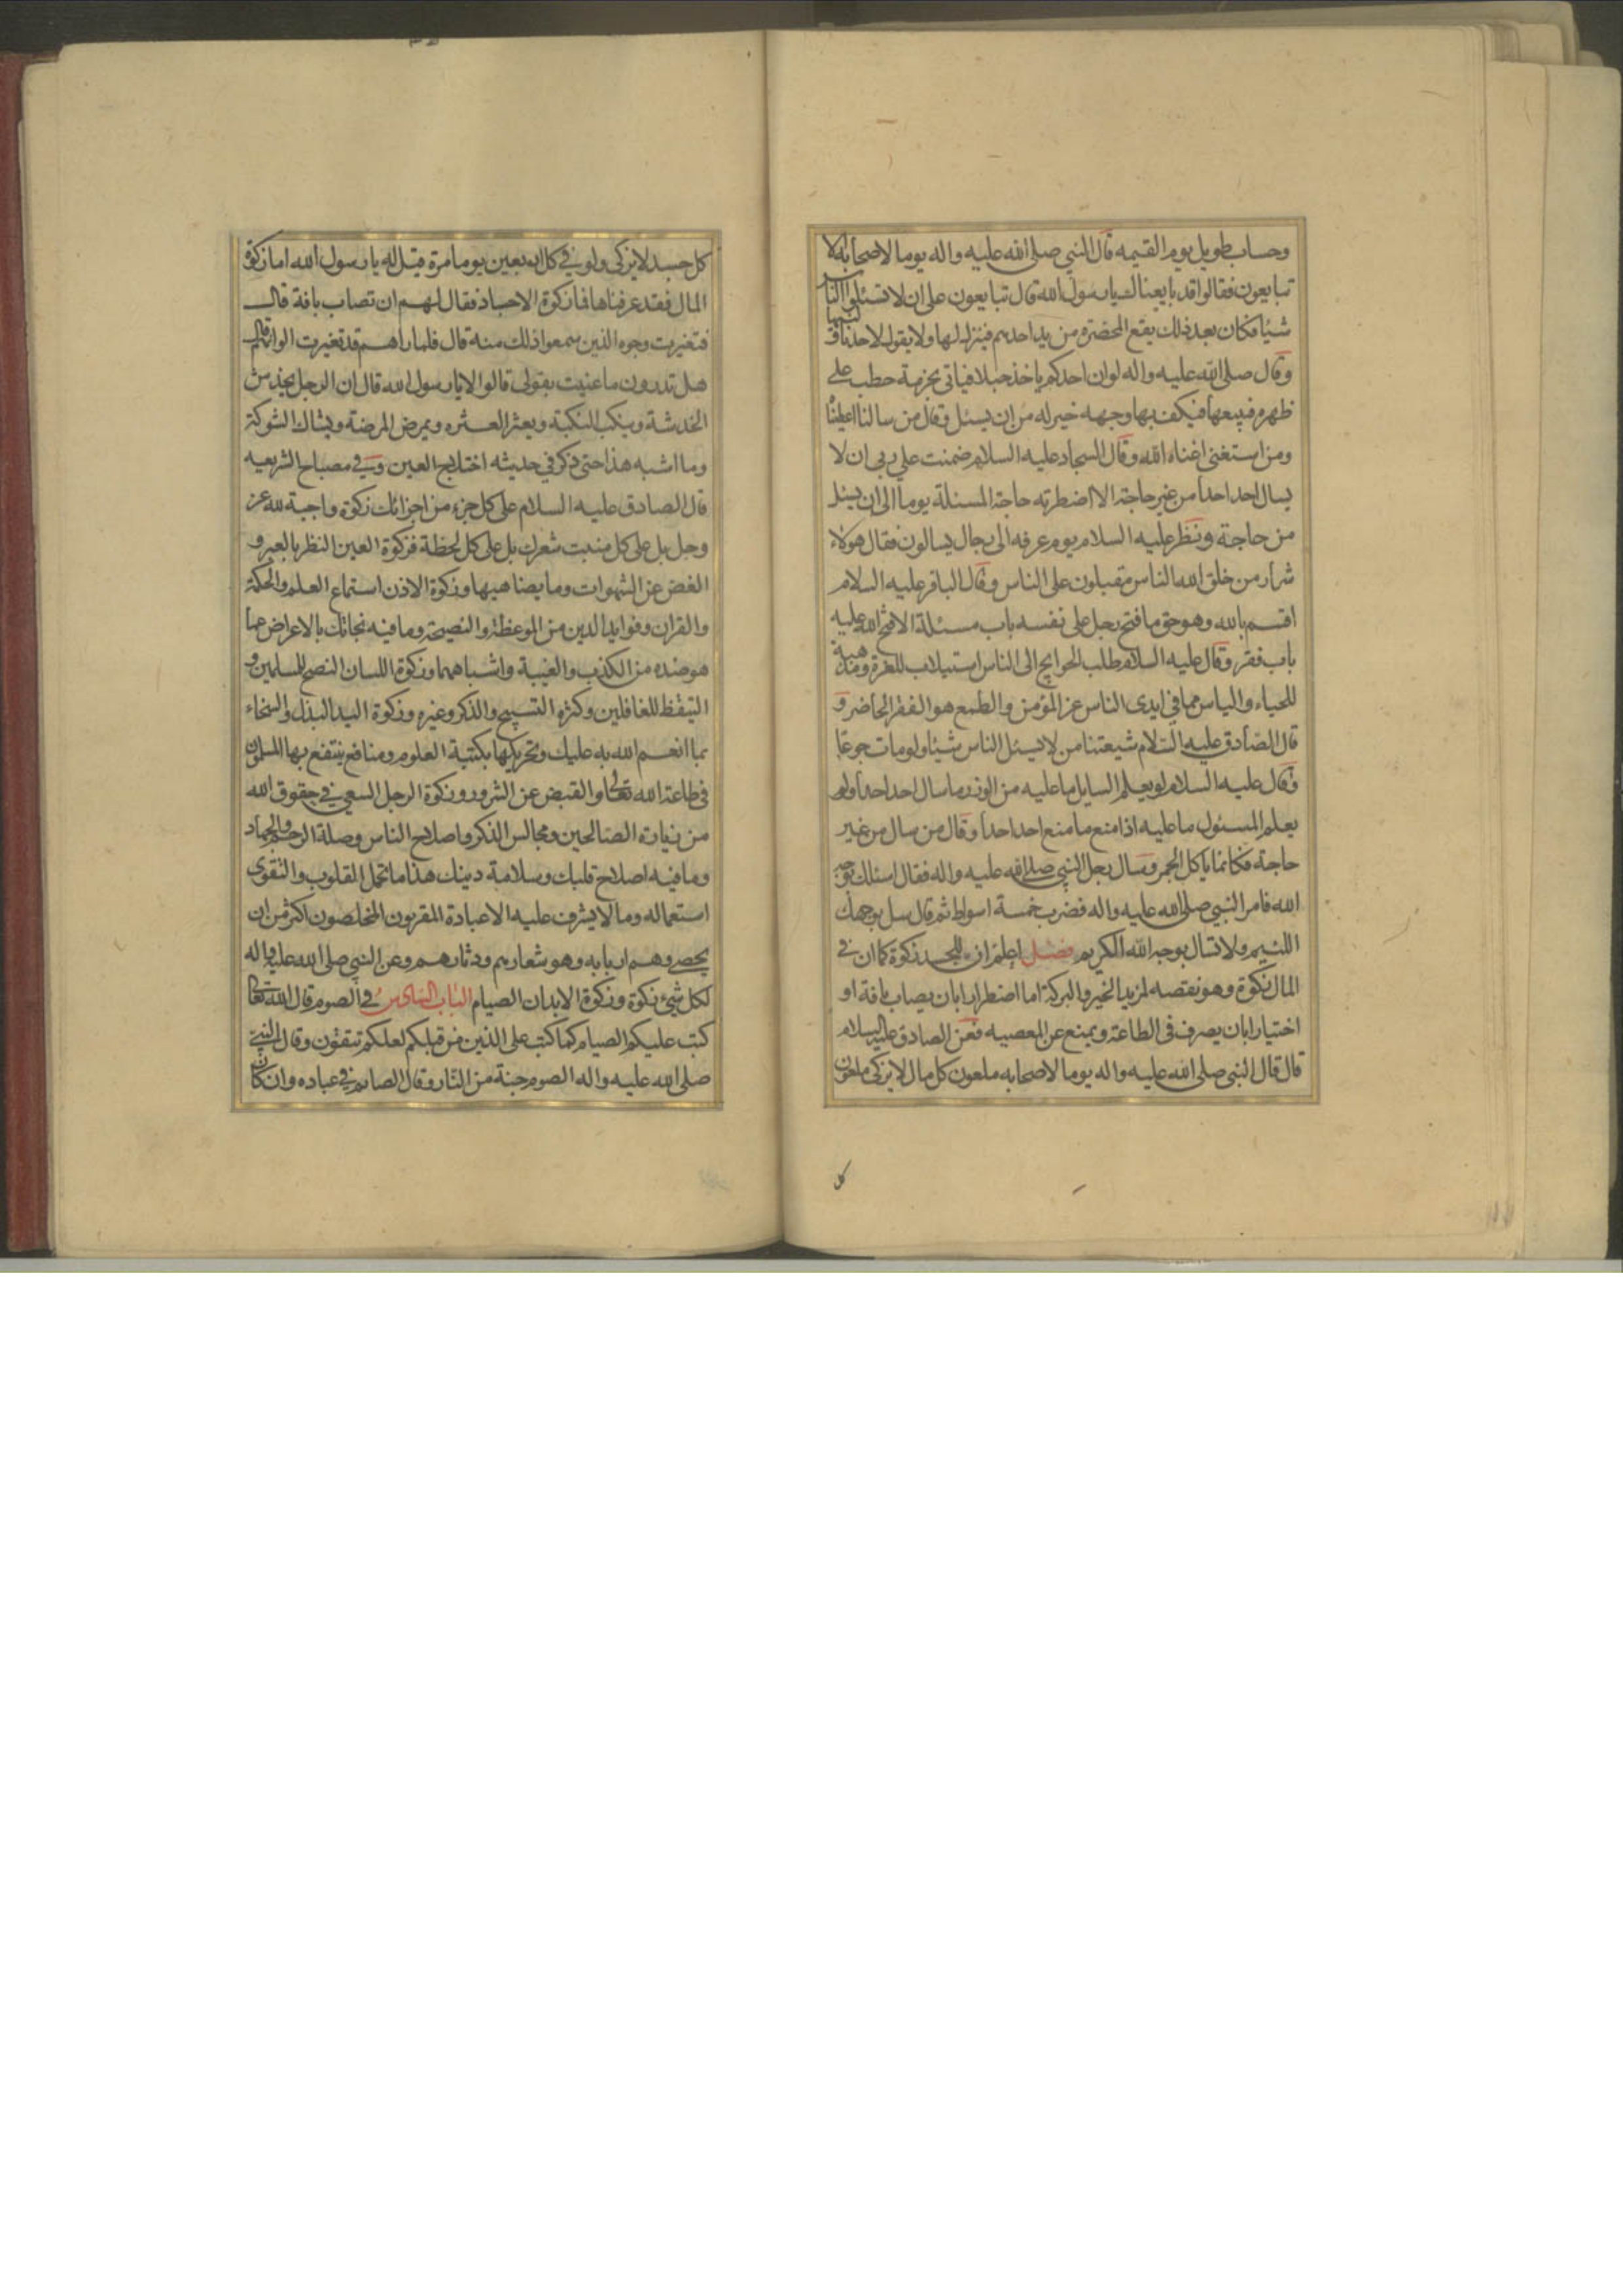 وحساب طويل يوم القيمه قال النبي صلى الله عليه واله يوما لاصحابه الا
تبايعون فقالوا قد بايعناك يارسول الله قال تبايعون على ان لا تسئلوا الناس
شيئا فكان بعد ذلك يقع المخصرة من يد احدهم فينزل لها ولا يقول لاحد ناولنيها
وقال صلى الله عليه واله لو ان احدكم ياخذ حبلا فياتى بحزمة حطب على
ظهره فيبيعها فيكف بها وجهه خير له من ان يسئل وقال من سالنا اعطيناه
ومن استغنى اغناه الله وقال السجاد عليه السلام ضمنت على ربى ان لا
يسال احد احدا من غير حاجة الا اضطرته حاجة المسئلة يوما الى ان يسئل
من حاجة ونظر عليه السلام يوم عرفه الى رجال يسالون فقال هولاء
شرار من خلق الله الناس مقبلون على الناس وقال الباقر عليه السلام
اقسم بالله وهو حق ما فتح رجل على نفسه باب مسئلة الا فتح الله عليه
باب فقر وقال عليه السلام طلب الحوايج الى الناس استيلاب للعزة ومذهبة
للحياء والياس مما فى ايدى الناس عز المؤمن والطمع هو الفقر الحاضر و
قال الصادق عليه السلام شيعتنا من لا يسئل الناس شيئا ولو مات جوعا
وقال عليه السلام لو يعلم السايل ما عليه من الوزر ما سال احد احدا ولو
يعلم المسئول ما عليه اذا منع ما منع احد احدا وقال من سال من غير
حاجة فكانما ياكل الجمر وسال رجل النبي صلى الله عليه واله فقال اسئلك بوجه
الله فامر النبي صلى الله عليه واله فضرب خمسة اسواط ثم قال سل بوجهك
اللئيم ولا تسال بوجه الله الكريم فصل اعلم ان للجسد زكوة كما ان فى
المال زكوة وهو نقصه لمزيد الخير والبركة اما اضطرارا بان يصاب بافة او
اختيارا بان يصرف فى الطاعة ويمنع عن المعصيه فعن الصادق عليه السلام
قال قال النبي صلى الله عليه واله يوما لاصحابه ملعون كل مال لا يزكى ملعون
كل
كل جسد لا يزكى ولو في كل اربعين يوما مرة فقيل له يارسول الله اما زكوة
المال فقد عرفناها فما زكوة الاجساد فقال لهم ان تصاب بافة قال
فتغيرت وجوه الذين سمعوا ذلك منه قال فلما راهم قد تغيرت الوانهم قال لهم
هل تدرون ما عنيت بقولى قالوا لا يارسول الله قال ان الرجل يخدش
الخدشة وينكب النكبة ويعثر العثره ويمرض المرضة ويشاك الشوكة
وما اشبه هذا حتى ذكر في حديثه اختلاج العين وفى مصباح الشريعه
قال الصادق عليه السلام على كل جزء من اجزائك زكوة واجبة لله عز
وجل بل على كل منبت شعرك بل على كل لحظة فزكوة العين النظر بالعبر و
الغض عن الشهوات وما يضاهيها وزكوة الاذن استماع العلم والحكمة
والقران وفوايد الدين من الموعظة والنصيحة وما فيه نجاتك بالاعراض عما
هو ضده من الكذب والغيبة واشباههما وزكوة اللسان النصح للمسلمين و
التيقظ للغافلين وكثرة التسبيح والذكر وغيره وزكوة اليد البذل والسخاء
بما انعم الله به عليك وتحريكها بكتبة العلوم ومنافع ينتفع بها المسلمون
فى طاعة الله تعالى والقبض عن الشرور وزكوة الرجل السعى فى حقوق الله
من زيارة الصالحين ومجالس الذكر واصلاح الناس وصلة الرحم والجهاد
وما فيه اصلاح قلبك وسلامة دينك هذا ما تحمل القلوب والتقوى
استعماله وما لا يشرف عليه الا عباده المقربون المخلصون اكثر من ان
يحصى وهم اربابه وهو شعارهم ودثارهم وعن النبي صلى الله عليه واله
لكل شئ زكوة وزكوة الابدان الصيام الباب السادس في الصوم قال الله تعالى
كتب عليكم الصيام كما كتب على الذين من قبلكم لعلكم تتقون وقال النبي
صلى الله عليه واله الصوم جنة من النار وقال الصايم فى عباده وان كان